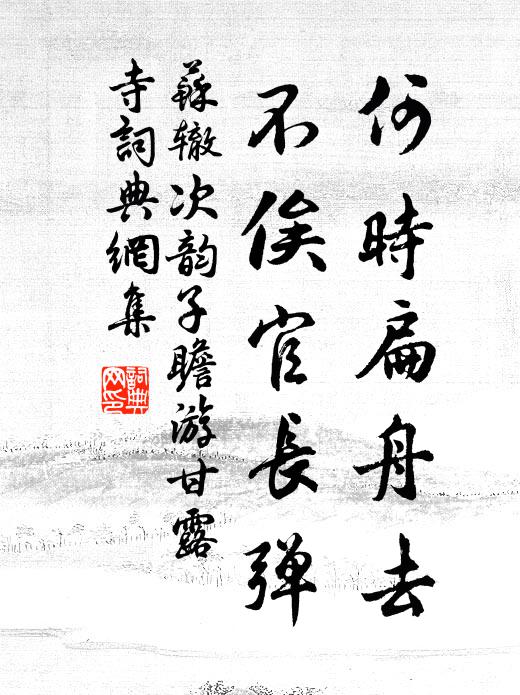 何時扁舟去
不俟官長彈
蘇辙次韵子瞻游甘露
寺詞典網集
詞典
网印